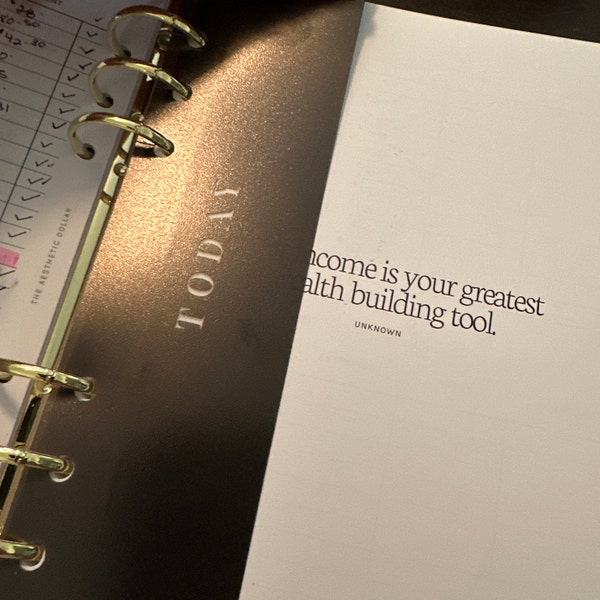 42.30
31
THE AESTHETIC DOLLAR
TODAY
ncome is your greatest
alth building tool.
UNKNOWN